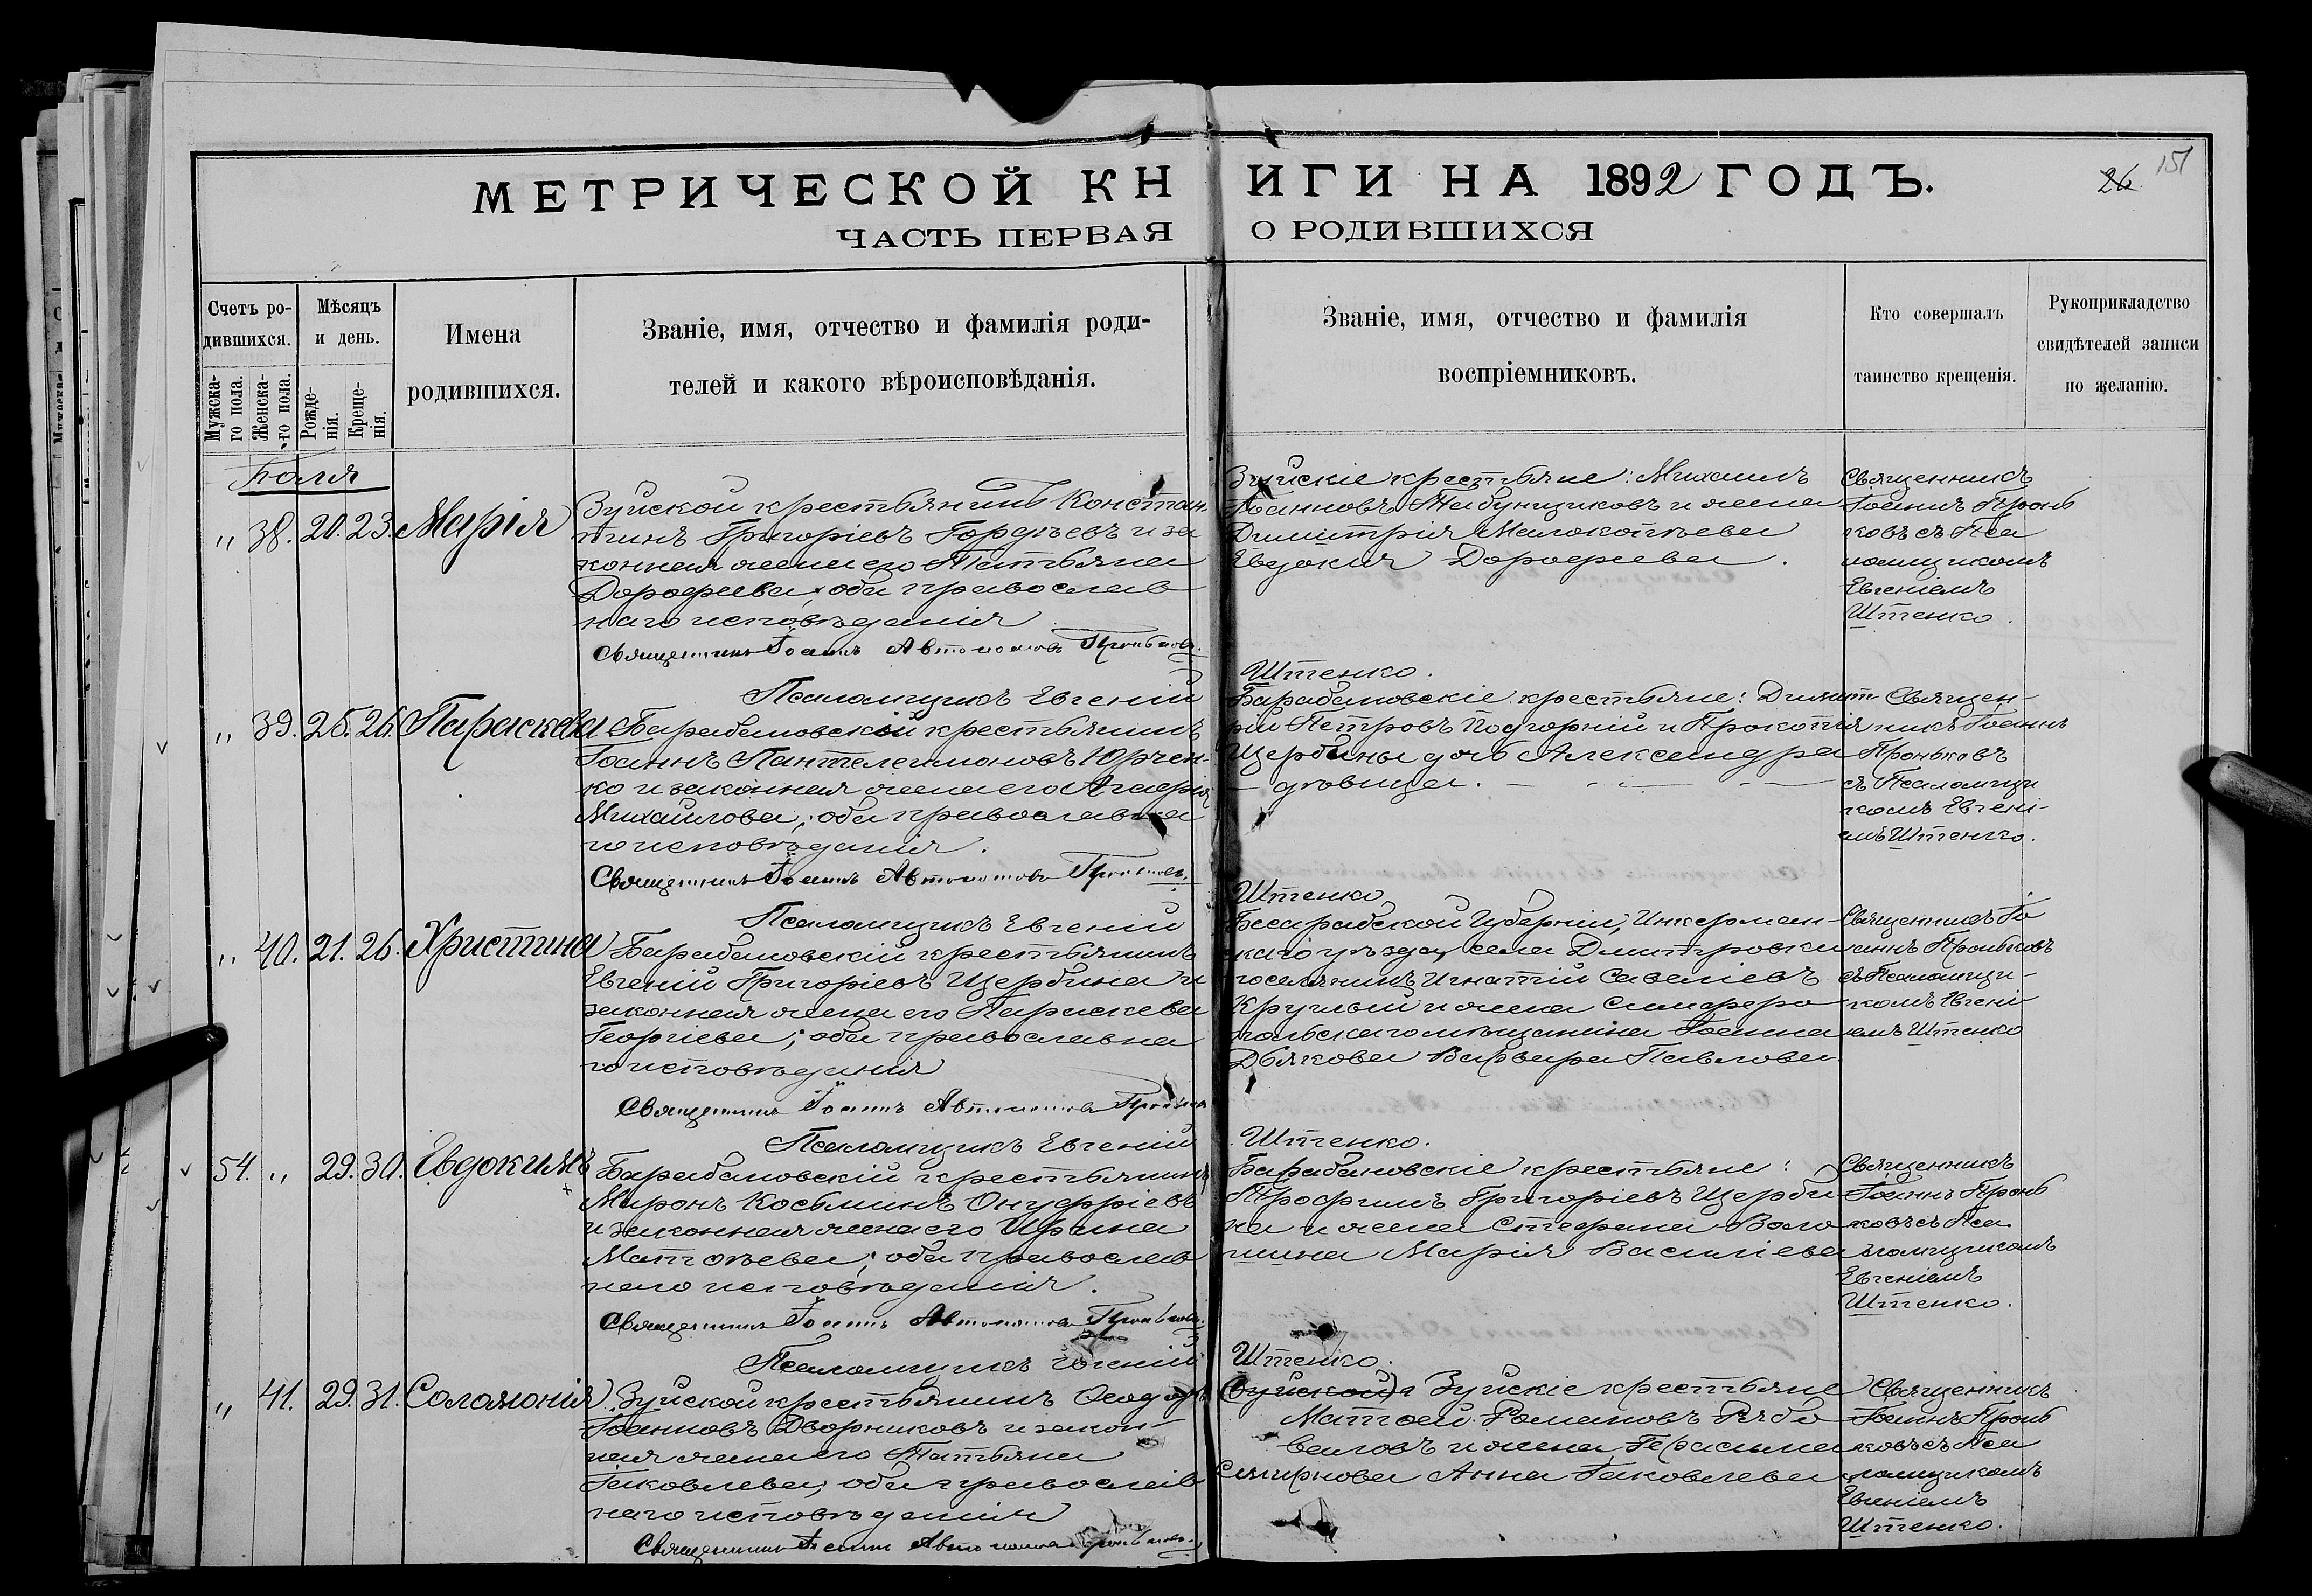 МЕТРИЧЕСКОЙ КНИГИ НА 1892 ГОДЪ.
26. 151
ЧАСТЬ ПЕРВАЯ О РОДИВШИХСЯ
Счетъ ро-
дившихся.
Мужска-
го пола.
Женска-
го пола.
Мѣсяцъ
и день.
Рожде-
нія.
Креще-
нія.
Имена
родившихся.
Званіе, имя, отчество и фамилія роди-
телей и какого вѣроисповѣданія.
Званіе, имя, отчество и фамилія
воспріемниковъ.
Кто совершалъ
таинство крещенія.
Рукоприкладство
свидѣтелей записи
по желанію.
Іюля
„ 38. 20. 23. Марія
Зуйской крестьянинъ Констан
тинъ Григоріевъ Гордѣевъ и за
конная жена его Татьяна
Дорофеева; оба православ
наго исповѣданія
Священникъ Іоаннъ Автономовъ Проньковъ.
Псаломщикъ Евгеній
Зуйскіе крестьяне: Михаилъ
Іоанновъ Табунщиковъ и жена
Димитрія Малокотѣева
Евдокія Дорофеева.
Штенко.
Священникъ
Іоаннъ Пронь
ковъ съ Пса
ломщикомъ
Евгеніемъ
Штенко.
„ 39. 25. 26. Параскева
Барабановскій крестьянинъ
Іоаннъ Пантелеимоновъ Юрчен-
ко и законная жена его Агафія
Михайлова; оба православна
го исповѣданія.
Священникъ Іоаннъ Автономовъ Проньковъ.
Псаломщикъ Евгеній
Барабановскіе крестьяне: Димит
рій Петровъ Подгорній и Прокопія
Щербины дочь Александра
дѣвица.
Штенко
Священ-
никъ Іоаннъ
Проньковъ
съ Псаломщи
комъ Евгені-
емъ Штенко.
„ 40. 21. 26. Христина
Барабановскій крестьянинъ
Евгеній Григоріевъ Щербина и
законная жена его Параскева
Георгіева; оба православна
го исповѣданія
Священникъ Іоаннъ Автономовъ Проньков
Псаломщикъ Евгеній
Бесарабской Губерніи, Инкерман-
скаго уѣзда, села Дмитровки
поселянинъ Игнатій Савеліевъ
Круглый и жена Симферо
польскаго мѣщанина Іоанна
Дьякова Варвара Павлова
Штенко.
Священникъ Іо
аннъ Проньковъ
съ Псаломщи-
комъ Евгені-
емъ Штенко
54. „ 29. 30. Евдокимъ
Барабановскій крестьянинъ
Миронъ Косьминъ Онуфріевъ
и законная жена его Ирина
Матѳѣева; оба православ
наго исповѣданія.
Священникъ Іоаннъ Автономовъ Проньковъ.
Псаломщикъ Евгеній
Барабановскіе крестьяне:
Трофимъ Григоріевъ Щерби
на и жена Стефана Воло
шина Марія Василіева
Штенко.
Священникъ
Іоаннъ Пронь
ковъ съ Пса
ломщикомъ
Евгеніемъ
Штенко.
„ 41. 29. 31. Соломонія
Зуйской крестьянинъ Ѳеодоръ
Іоанновъ Дворниковъ и закон
ная жена его Татьяна
Іаковлева; оба православ
наго исповѣданія
Священникъ Іоаннъ Автономовъ Проньковъ.
(Зуйской) Зуйскіе крестьяне
Матѳей Романовъ Рябо
валовъ и жена Герасима
Смирнова Анна Іаковлева
Священникъ
Іоаннъ Пронь
ковъ съ Пса
ломщикомъ
Евгеніемъ
Штенко.